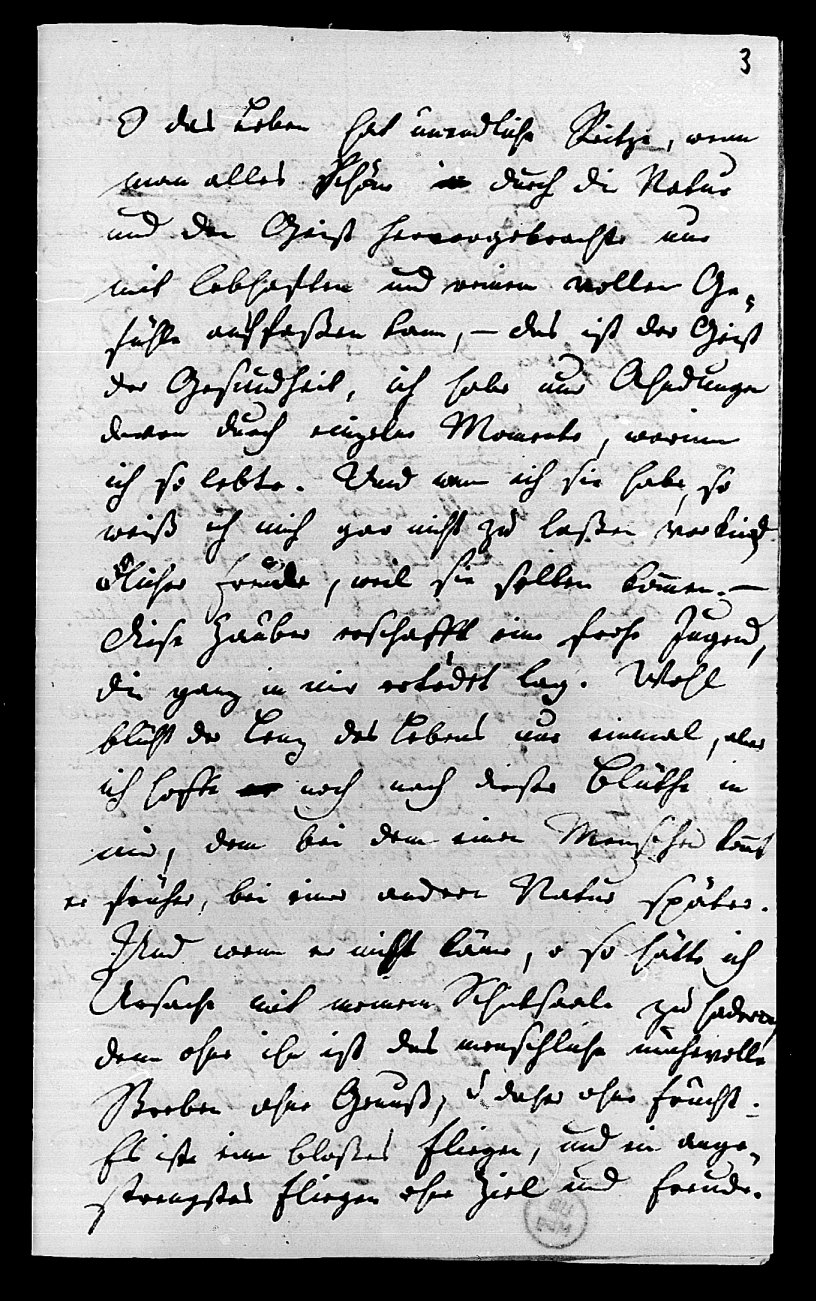 3
O das Leben hat unendliche Reitze, wenn
man alles Schöne durch die Natur
und den Geist hervorgebrachte nur
mit lebhaften und vollen Ge-
fühle auffaßen kann, – das ist der Geist
der Gesundheit, ich habe nur Ahndungen
davon durch einzelne Momente, worinn
ich so lebte. Und wenn ich sie habe, so
weiß ich mich gar nicht zu laßen vor kind-
licher Freude, weil sie selten kommen. –
Diese Zauber erschafft eine frohe Jugend,
die ganz in mir ertödtet lag. Wohl
blüht der Lenz des Lebens nur einmal, aber
ich hoffe noch nach dieser Blüthe in
mir, denn bei dem einen Menschen kömt
er früher, bei einer andern Natur später.
Und wenn er nicht käme, o so hätte ich
Ursache mit meinem Schicksaale zu hadern,
denn ohne ihn ist das menschliche mühevolle
Streben ohne Genuß, u daher ohne Frucht.
Es ist ein bloßes Fliegen, und ein ange-
strengtes Fliegen ohne Ziel und Freude.